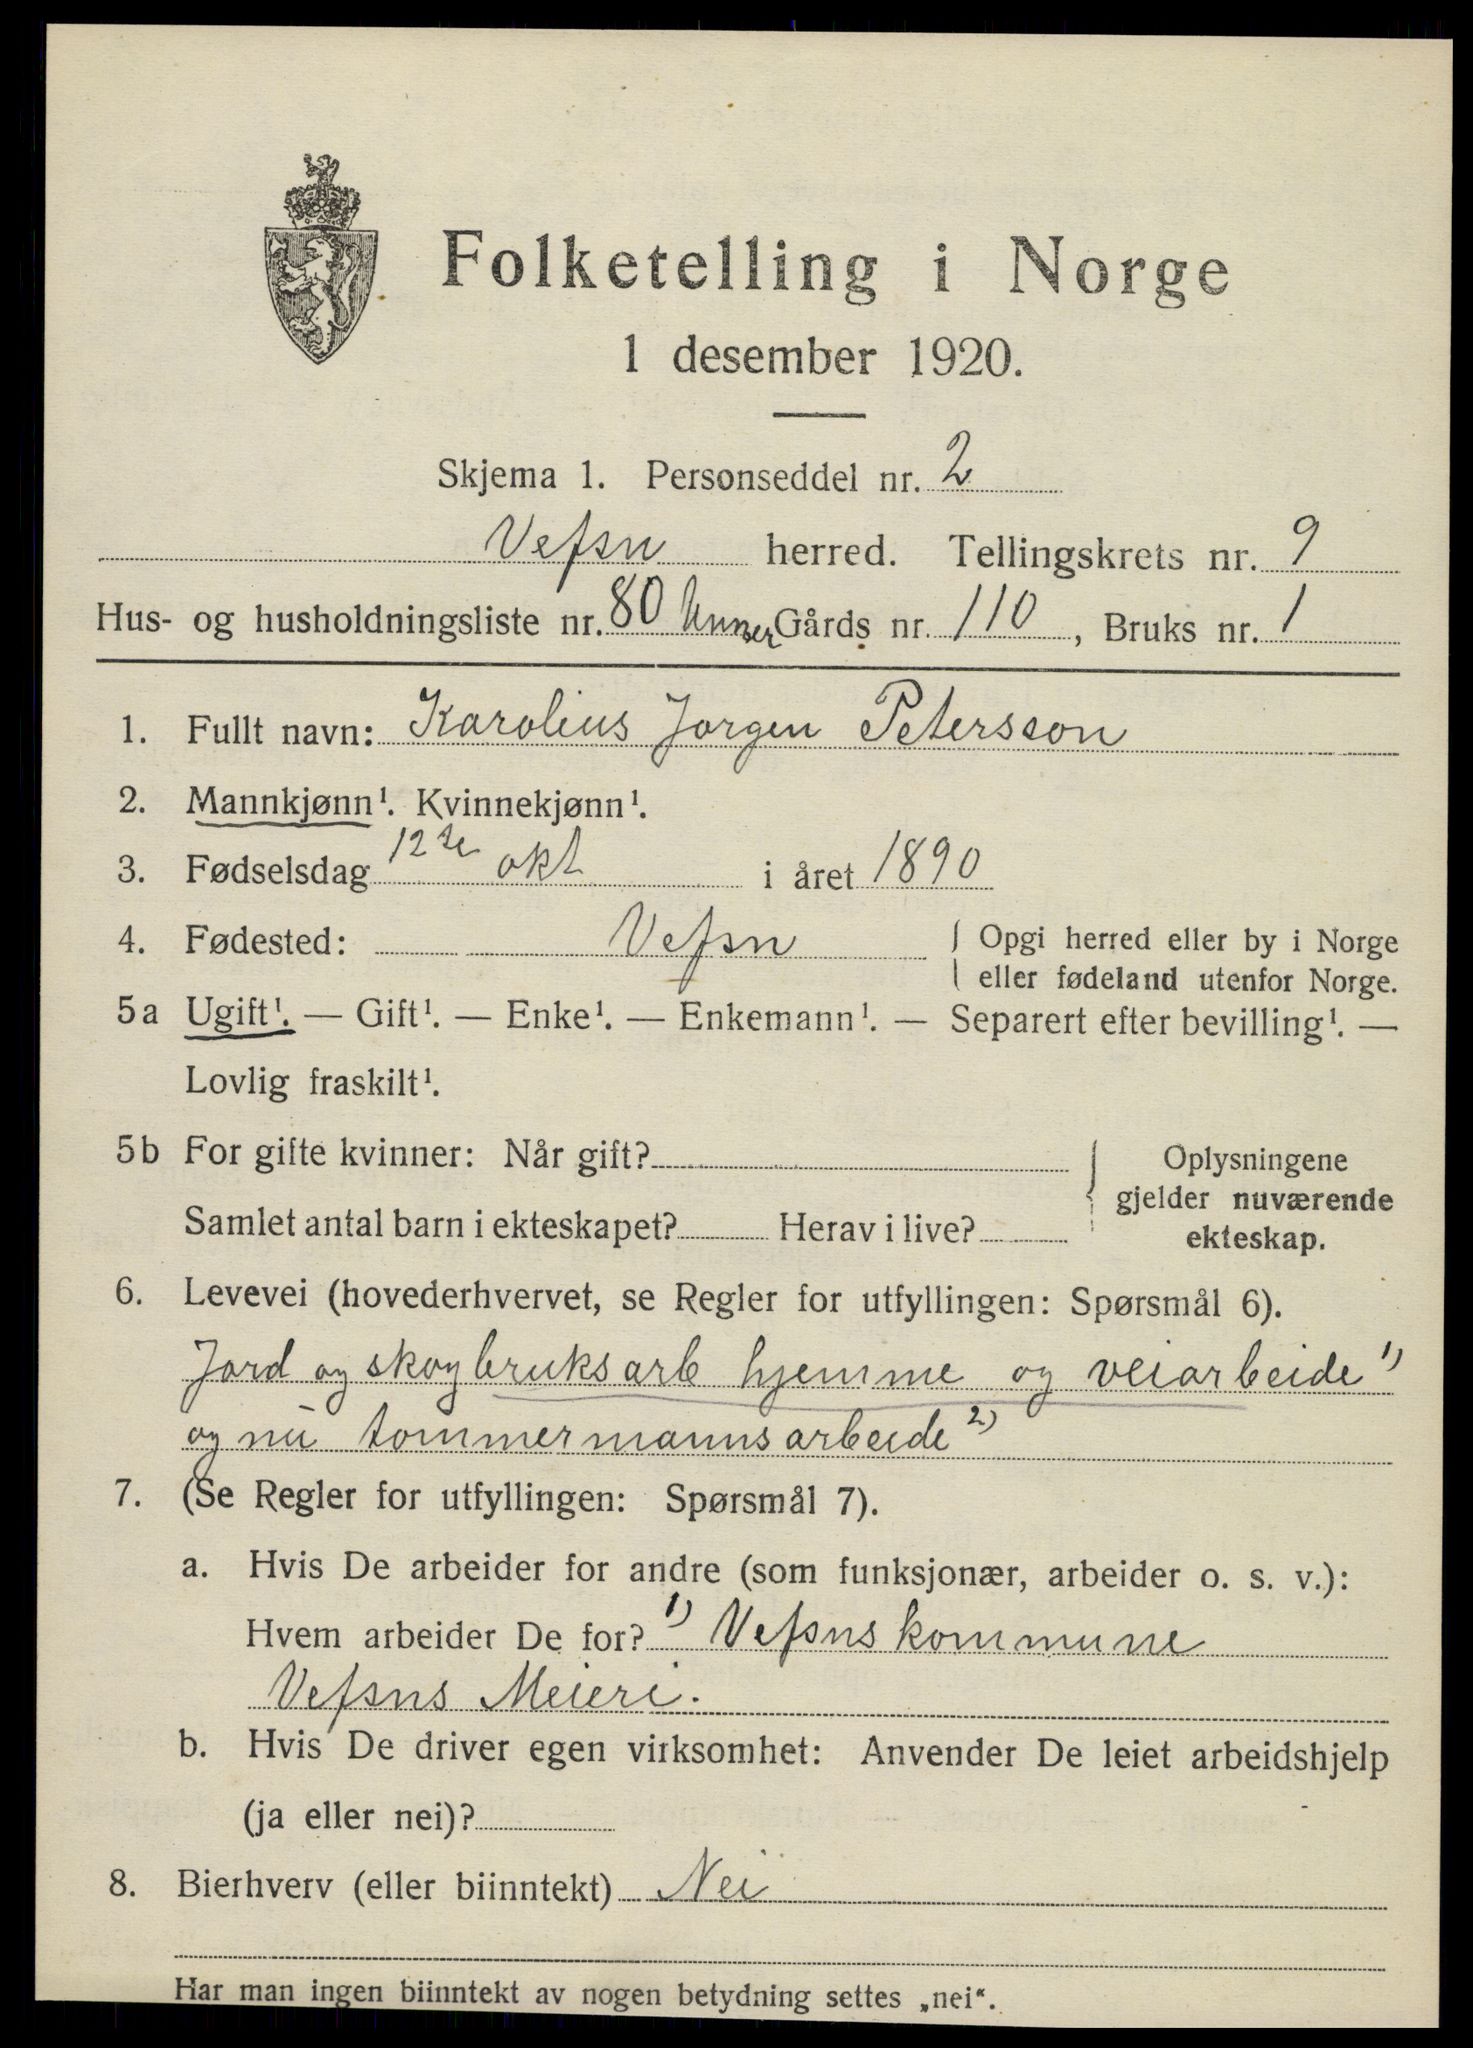 Folketelling i Norge
1 desember 1920.
Skjema 1. Personseddel nr. 2
Vefsn herred. Tellingskrets nr. 9
Hus- og husholdningsliste nr. 80 Gårds nr. 110, Bruks nr. 1
1. Fullt navn: Karolius Jorgen Petersson
2. Mannkjønn¹. Kvinnekjønn¹.
3. Fødselsdag 12te okt i året 1890
4. Fødested: Vefsn { Opgi herred eller by i Norge
eller fødeland utenfor Norge.
5a Ugift¹. — Gift¹. — Enke¹. — Enkemann¹. — Separert efter bevilling¹. —
Lovlig fraskilt¹.
5b For gifte kvinner: Når gift? { Oplysningene
gjelder nuværende
Samlet antal barn i ekteskapet? Herav i live?
ekteskap.
6. Levevei (hovederhvervet, se Regler for utfyllingen: Spørsmål 6).
Jord og skogbruksarb hjemme og veiarbeide 1)
og nu tommermannsarbeide 2)
7. (Se Regler for utfyllingen: Spørsmål 7).
a. Hvis De arbeider for andre (som funksjonær, arbeider o. s. v.):
Hvem arbeider De for? 1) Vefsns kommune
Vefsns Meieri.
b. Hvis De driver egen virksomhet: Anvender De leiet arbeidshjelp
(ja eller nei)?
8. Bierhverv (eller biinntekt) Nei
Har man ingen biinntekt av nogen betydning settes „nei“.